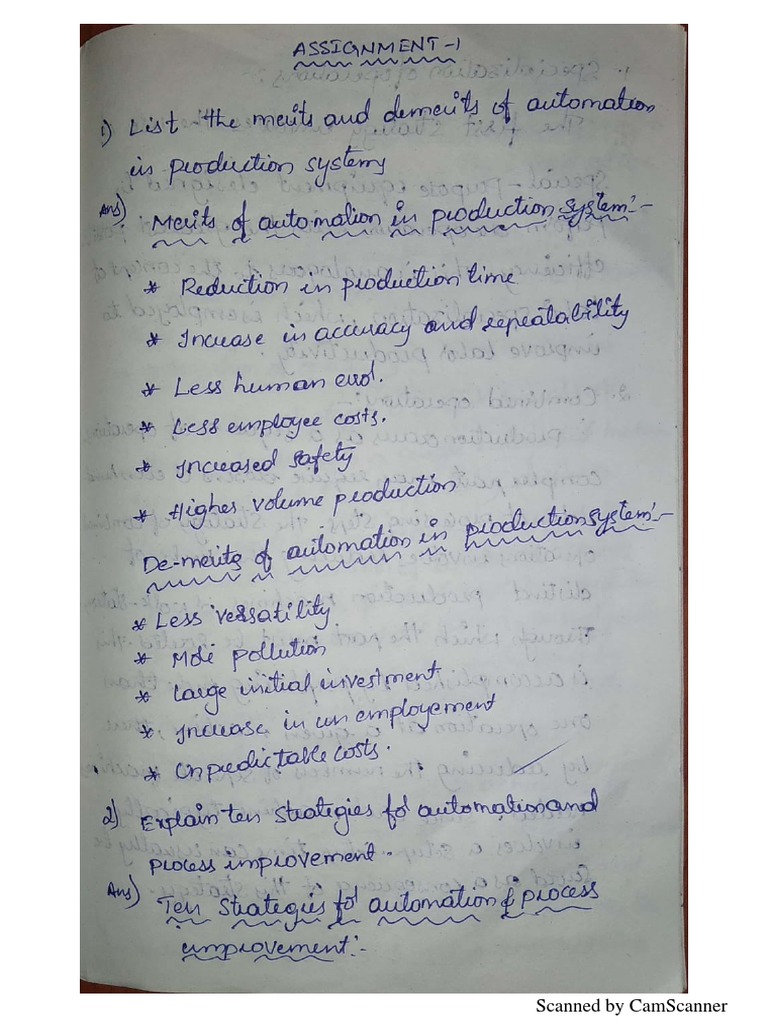 ASSIGNMENT-1
1) List the merits and demerits of automation
in production systems
Ans) Merits of automation in production system:-
* Reduction in production time
* Increase in accuracy and repeatability
* Less human error.
* Less employee costs.
* Increased safety
* Higher volume production
De-merits of automation in production system:-
* Less versatility
* More pollution
* Large initial investment
* Increase in un employement
* Unpredictable costs.
2) Explain ten strategies for automation and
process improvement.
Ans) Ten strategies for automation & process
improvement:-
Scanned by CamScanner